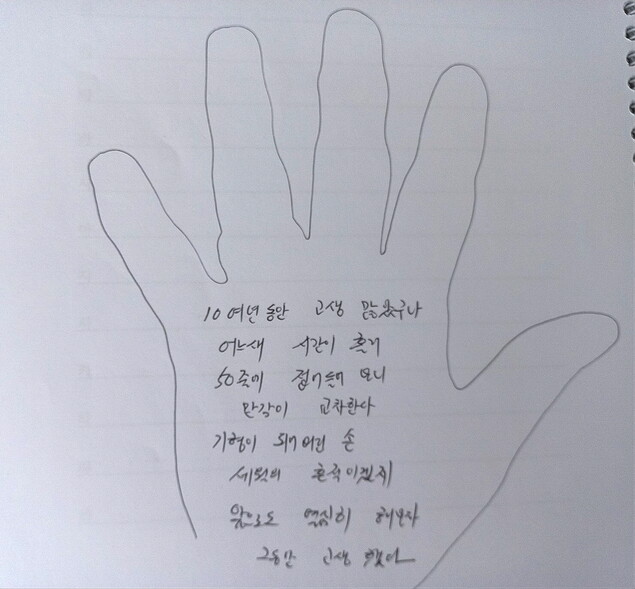 10여년 동안 고생 많았구나
어느새 시간이 흘러
50줄에 접어들어 보니
만감이 교차한다
기형이 되어버린 손
세월의 흔적이겠지
앞으로도 열심히 해보자
그동안 고생 했어